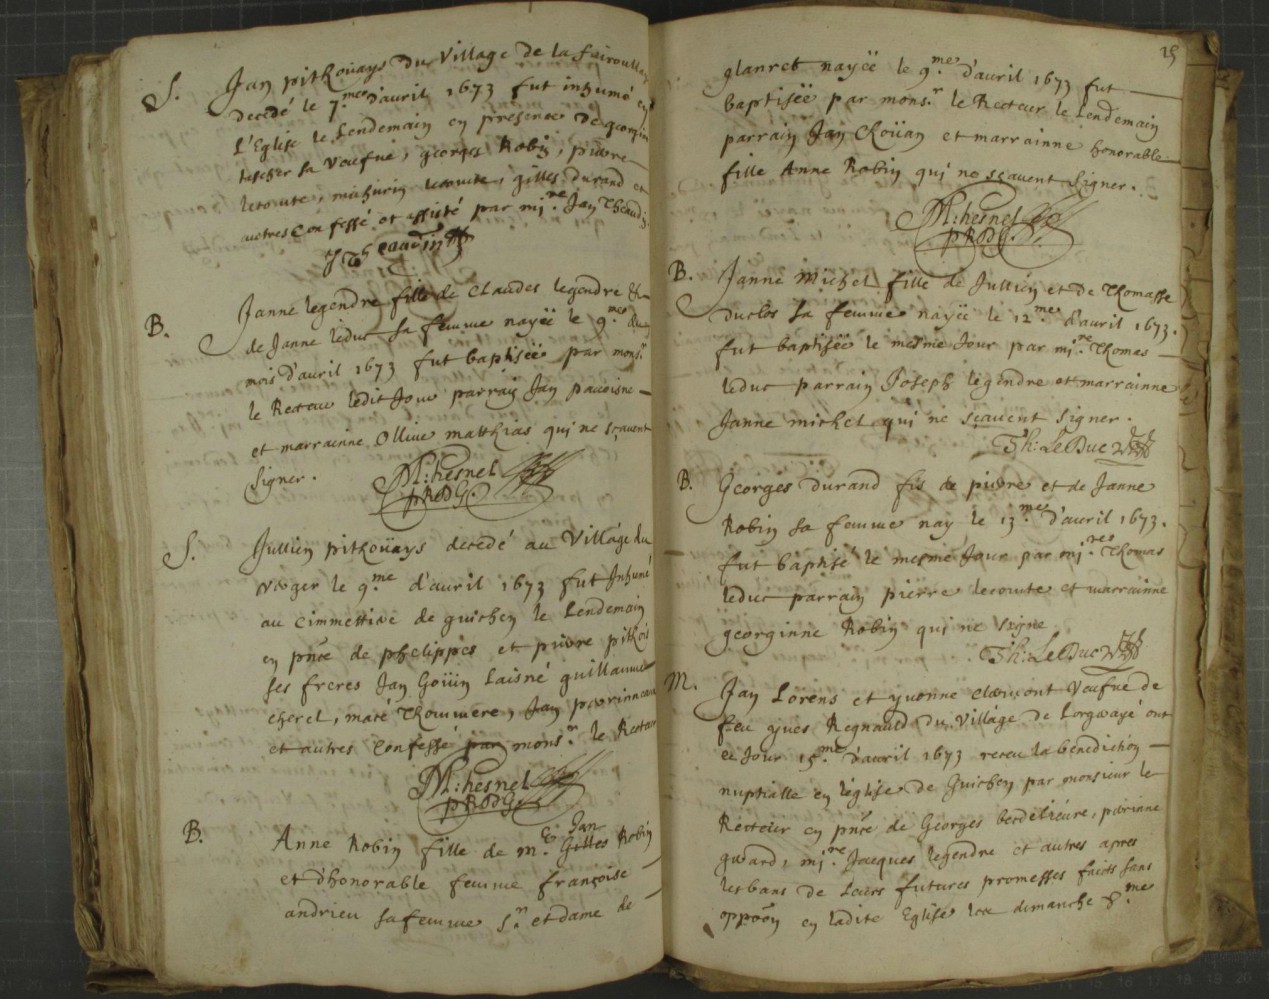 S. Jan pitkoüays du Village de la
decedé le 7.me d'auril 1673 fut inhumé en
L'Eglise le Lendemain en presence de georgin
sa Veufue, georges Robin, pierre
lecomte, mathurin lecomte, gilles durand et
autres confessé et assisté par mi.re Jan Theaudin
B. Janne legendre fille de Claudes legendre &
de Janne leduc sa femme nayëe le 9.me du
mois d'auril 1673 fut baptisëe par mons.r
le Recteur ledit Jour parrain Jan
et marrainne Olliue matthias qui ne scauent
signer.
M: hesnel
pRDG.
S. Jullien pitkoüays decedé au Village du
le 9.me d'auril 1673 fut Inhumé
au cimmetiere de guichen le Lendemain
en pñce de phelippes et pierre pitkois
ses freres Jan Goüin Laisné guillaume
cherel, maté Jan
et autres Confessé par mons.r le Recteur
M: hesnel
pRDG.
B. Anne Robin fille de m.e Gilles Jan Robin
et d'honorable femme françoise
andrieu sa femme S.r et dame de
25
glanret nayëe le 9.me d'auril 1673 fut
baptisëe par mons.r le Recteur le Lendemain
parrain Jan Choüan et marrainne honorable
fille Anne Robin qui ne scauent Signer.
M: hesnel
pRDG.
B. Janne Michel fille de Jullien et de Thomasse
duclos sa femme nayëe le 12.me d'auril 1673.
fut baptisëe le mesme Jour par mi.re Thomas
leduc parrain Joseph legendre et marrainne
Janne michel qui ne scauent signer.
Th: Le Duc
B. Georges durand fis de pierre et de Janne
Robin sa femme nay le 13.me d'auril 1673.
fut baptisé le mesme Jour par mi.re Thomas
leduc parrain pierre lecomte et marrainne
georginne Robin qui ne signe
Th: Le Duc
M. Jan Lorens et yuonne Veufue de
feu yues Regnauld du Village de ont
ce Jour 15.me d'auril 1673 receu la benediction
nuptialle en l'eglise de Guichen par monsieur le
Recteur en pñce de Georges
mi.re Jacques legendre et autres apres
les bans de Leurs futures promesses faicts sans
oppoõn en ladite Eglise les dimanche 8.me